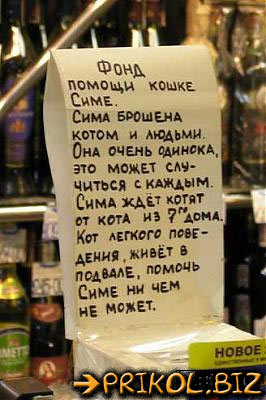 Фонд
помощи кошке
Симе.
Сима брошена
котом и людьми.
Она очень одинока,
это может слу-
читься с каждым.
Сима ждёт котят
от кота из 7го дома.
Кот легкого пове-
дения, живёт в
подвале, помочь
Симе ни чем
не может.
НОВОЕ
PRIKOL.BIZ